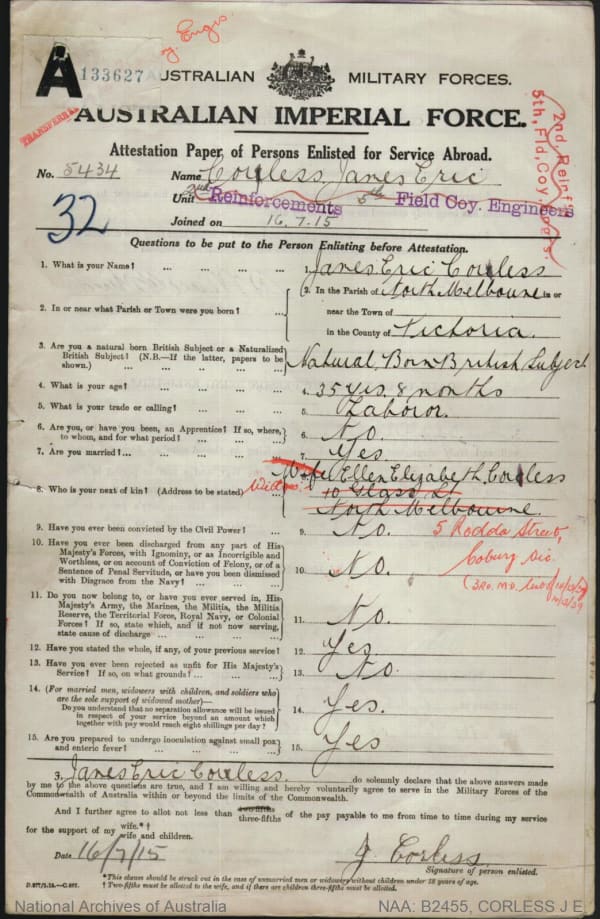 y. Engrs.
A 133627 AUSTRALIAN MILITARY FORCES.
TRANSFERRED
AUSTRALIAN IMPERIAL FORCE.
Attestation Paper of Persons Enlisted for Service Abroad.
No. 5434 Name Corless James Eric
Unit 2nd Reinforcements 5th Field Coy. Engineers
2nd. Reinf's
5th. Fld. Coy. Engrs.
32
Joined on 16.7.15
Questions to be put to the Person Enlisting before Attestation.
1. What is your Name? ... ... ... ... 1. James Eric Corless
2. In or near what Parish or Town were you born? ... 2. In the Parish of North Melbourne in or
near the Town of
in the County of Victoria.
3. Are you a natural born British Subject or a Naturalized British Subject? (N.B.—If the latter, papers to be shown.) ... Natural Born British Subject
4. What is your age? ... ... ... ... 4. 35 yrs. 8 months
5. What is your trade or calling? ... ... ... 5. Laboror.
6. Are you, or have you been, an Apprentice? If so, where, to whom, and for what period? ... ... ... 6. No.
7. Are you married? ... ... ... ... 7. Yes.
8. Who is your next of kin? (Address to be stated) ... Wife Ellen Elizabeth Corless
Widow
10 Glass St
North Melbourne.
5 Rodda Street,
Coburg Vic.
(3RD. M.D.
9. Have you ever been convicted by the Civil Power? ... 9. No.
10. Have you ever been discharged from any part of His Majesty's Forces, with Ignominy, or as Incorrigible and Worthless, or on account of Conviction of Felony, or of a Sentence of Penal Servitude, or have you been dismissed with Disgrace from the Navy? ... ... ... 10. No.
11. Do you now belong to, or have you ever served in, His Majesty's Army, the Marines, the Militia, the Militia Reserve, the Territorial Force, Royal Navy, or Colonial Forces? If so, state which, and if not now serving, state cause of discharge ... ... ... 11. No.
12. Have you stated the whole, if any, of your previous service? 12. Yes.
13. Have you ever been rejected as unfit for His Majesty's Service? If so, on what grounds? ... ... 13. No.
14. (For married men, widowers with children, and soldiers who are the sole support of widowed mother)—
Do you understand that no separation allowance will be issued in respect of your service beyond an amount which together with pay would reach eight shillings per day? 14. Yes.
15. Are you prepared to undergo inoculation against small pox and enteric fever? ... ... ... ... 15. Yes
3. James Eric Corless. do solemnly declare that the above answers made
by me to the above questions are true, and I am willing and hereby voluntarily agree to serve in the Military Forces of the
Commonwealth of Australia within or beyond the limits of the Commonwealth.
And I further agree to allot not less than two-fifths three-fifths of the pay payable to me from time to time during my service
for the support of my wife.*† wife and children.
Date 16/7/15 J. Corless.
Signature of person enlisted.
*This clause should be struck out in the case of unmarried men or widowers without children under 18 years of age.
† Two-fifths must be allotted to the wife, and if there are children three-fifths must be allotted.
National Archives of Australia NAA: B2455, CORLESS J E